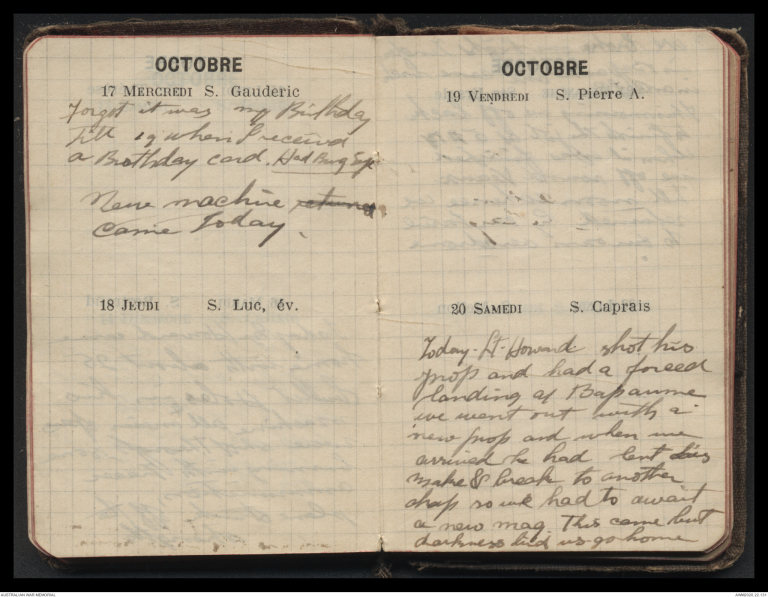 OCTOBRE
17 MERCREDI S. Gauderic
Forgot it was my Birthday
Till 19 when I received
a Birthday card.
New machine
came Today.
18 JEUDI S. Luc, év.
OCTOBRE
19 VENDREDI S. Pierre A.
20 SAMEDI S. Caprais
Today Lt. Howard shot his
prop and had a forced
landing at Bapaume
we went out with a
new prop and when we
arrived he had lent his
make & break to another
chap so we had to await
a new mag. This came but
darkness bid us go home
AUSTRALIAN WAR MEMORIAL